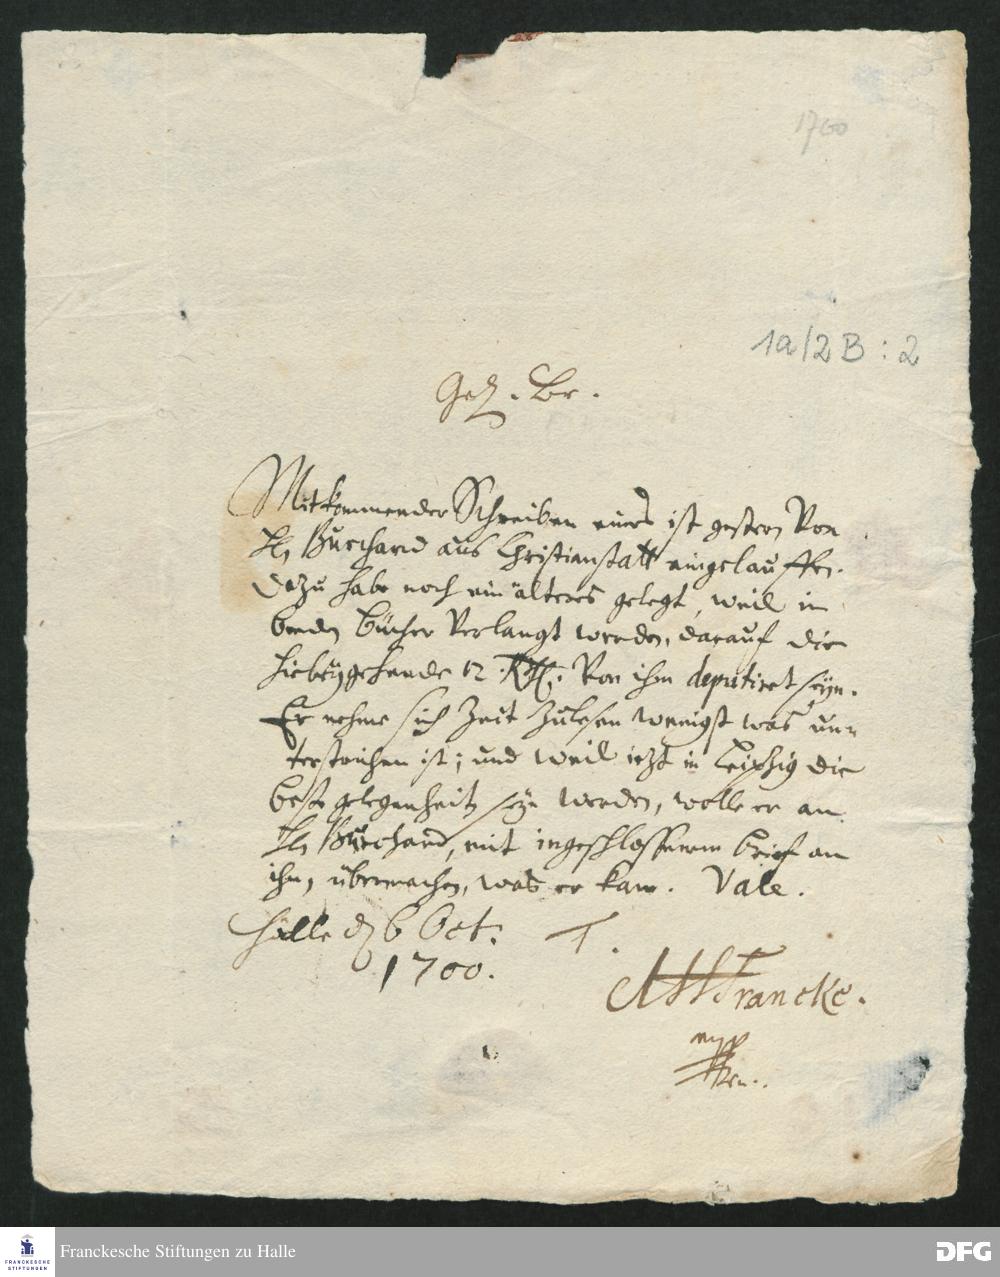 1700
1a/2 B : 2
Gel. Br.
Mitkommender Schreiben eines ist gestern Von
H. Burchard aus Christianstatt eingelauffen.
Dazu habe noch ein älteres gelegt, weil in
beeden Bücher Verlangt werden, darauf die
hiebeygehende 12 Rthl. Von ihm deputiret seyn.
Er nehme sich Zeit Zulesen wenigst was un-
terstrichen ist; und weil jetzt in Leipzig die
beste gelegenheit seyn werden, wolle er an
H. Burchard, mit ingeschlossenem brief an
ihn, übermachen, was er kan. Vale.
Halle d. 6 Oct.
1700.
T.
AHFrancke.
mpp
Franckesche Stiftungen zu Halle
FRANCKESCHE
STIFTUNGEN
DFG